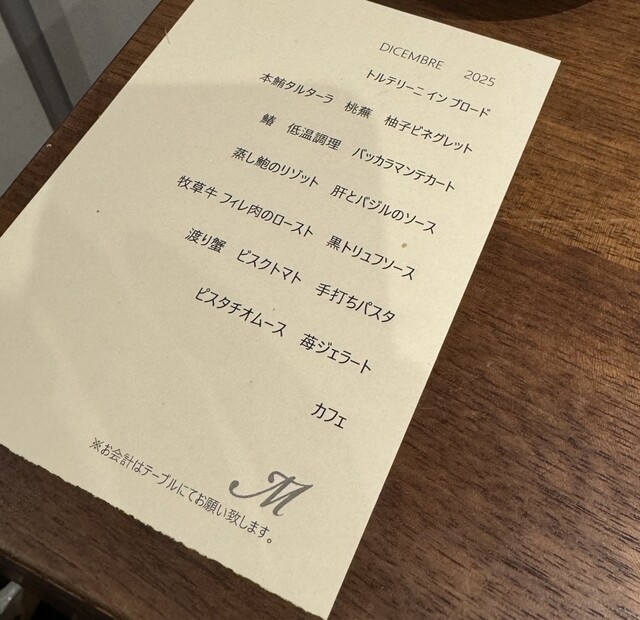 DICEMBRE 2025
トルテリーニ イン ブロード
本鮪タルターラ 桃蕪 柚子ビネグレット
鰆 低温調理 バッカラマンテカート
蒸し鮑のリゾット 肝とバジルのソース
牧草牛 フィレ肉のロースト 黒トリュフソース
渡り蟹 ビスクトマト 手打ちパスタ
ピスタチオムース 苺ジェラート
カフェ
M
※お会計はテーブルにてお願い致します。